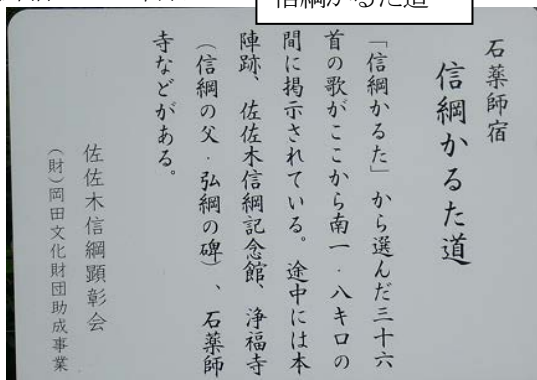 信綱かるた道
石薬師宿
信綱かるた道
「信綱かるた」から選んだ三十六
首の歌がここから南一・八キロの
間に掲示されている。途中には本
陣跡、佐佐木信綱記念館、浄福寺
(信綱の父・弘綱の碑)、石薬師
寺などがある。
佐佐木信綱顕彰会
(財)岡田文化財団助成事業